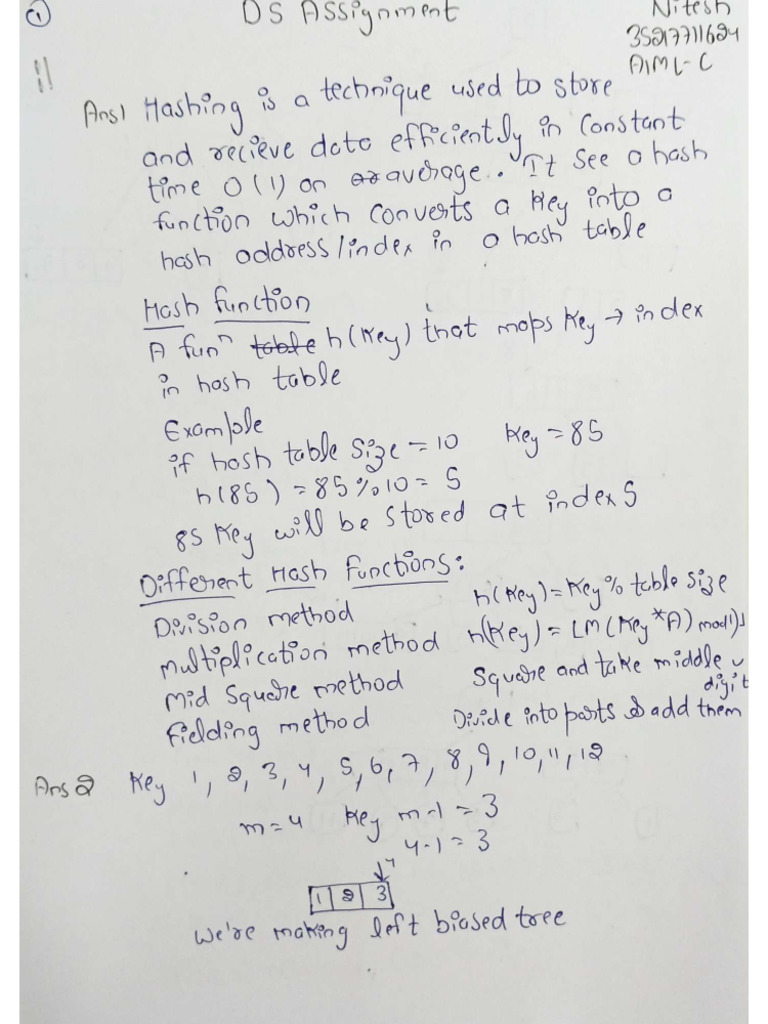 ①
DS Assignment
Nitesh
35217711624
AIML-C
Ans1 Hashing is a technique used to store
and recieve data efficiently in constant
time O(1) on average. It see a hash
function which converts a key into a
hash address/index in a hash table
Hash function
A funⁿ table h(key) that maps key → index
in hash table
Example
if hash table size = 10 Key = 85
h(85) = 85%10 = 5
85 Key will be stored at index 5
Different Hash Functions:
Division method h(key) = Key % table size
multiplication method h(Key) = ⌊M(Key*A) mod1)⌋
Mid Square method Square and take middle digit
Fielding method Divide into parts & add them
Ans2 Key 1, 2, 3, 4, 5, 6, 7, 8, 9, 10, 11, 12
m=4 Key m-1 = 3
4-1 = 3
4
1 2 3
We're making left biased tree